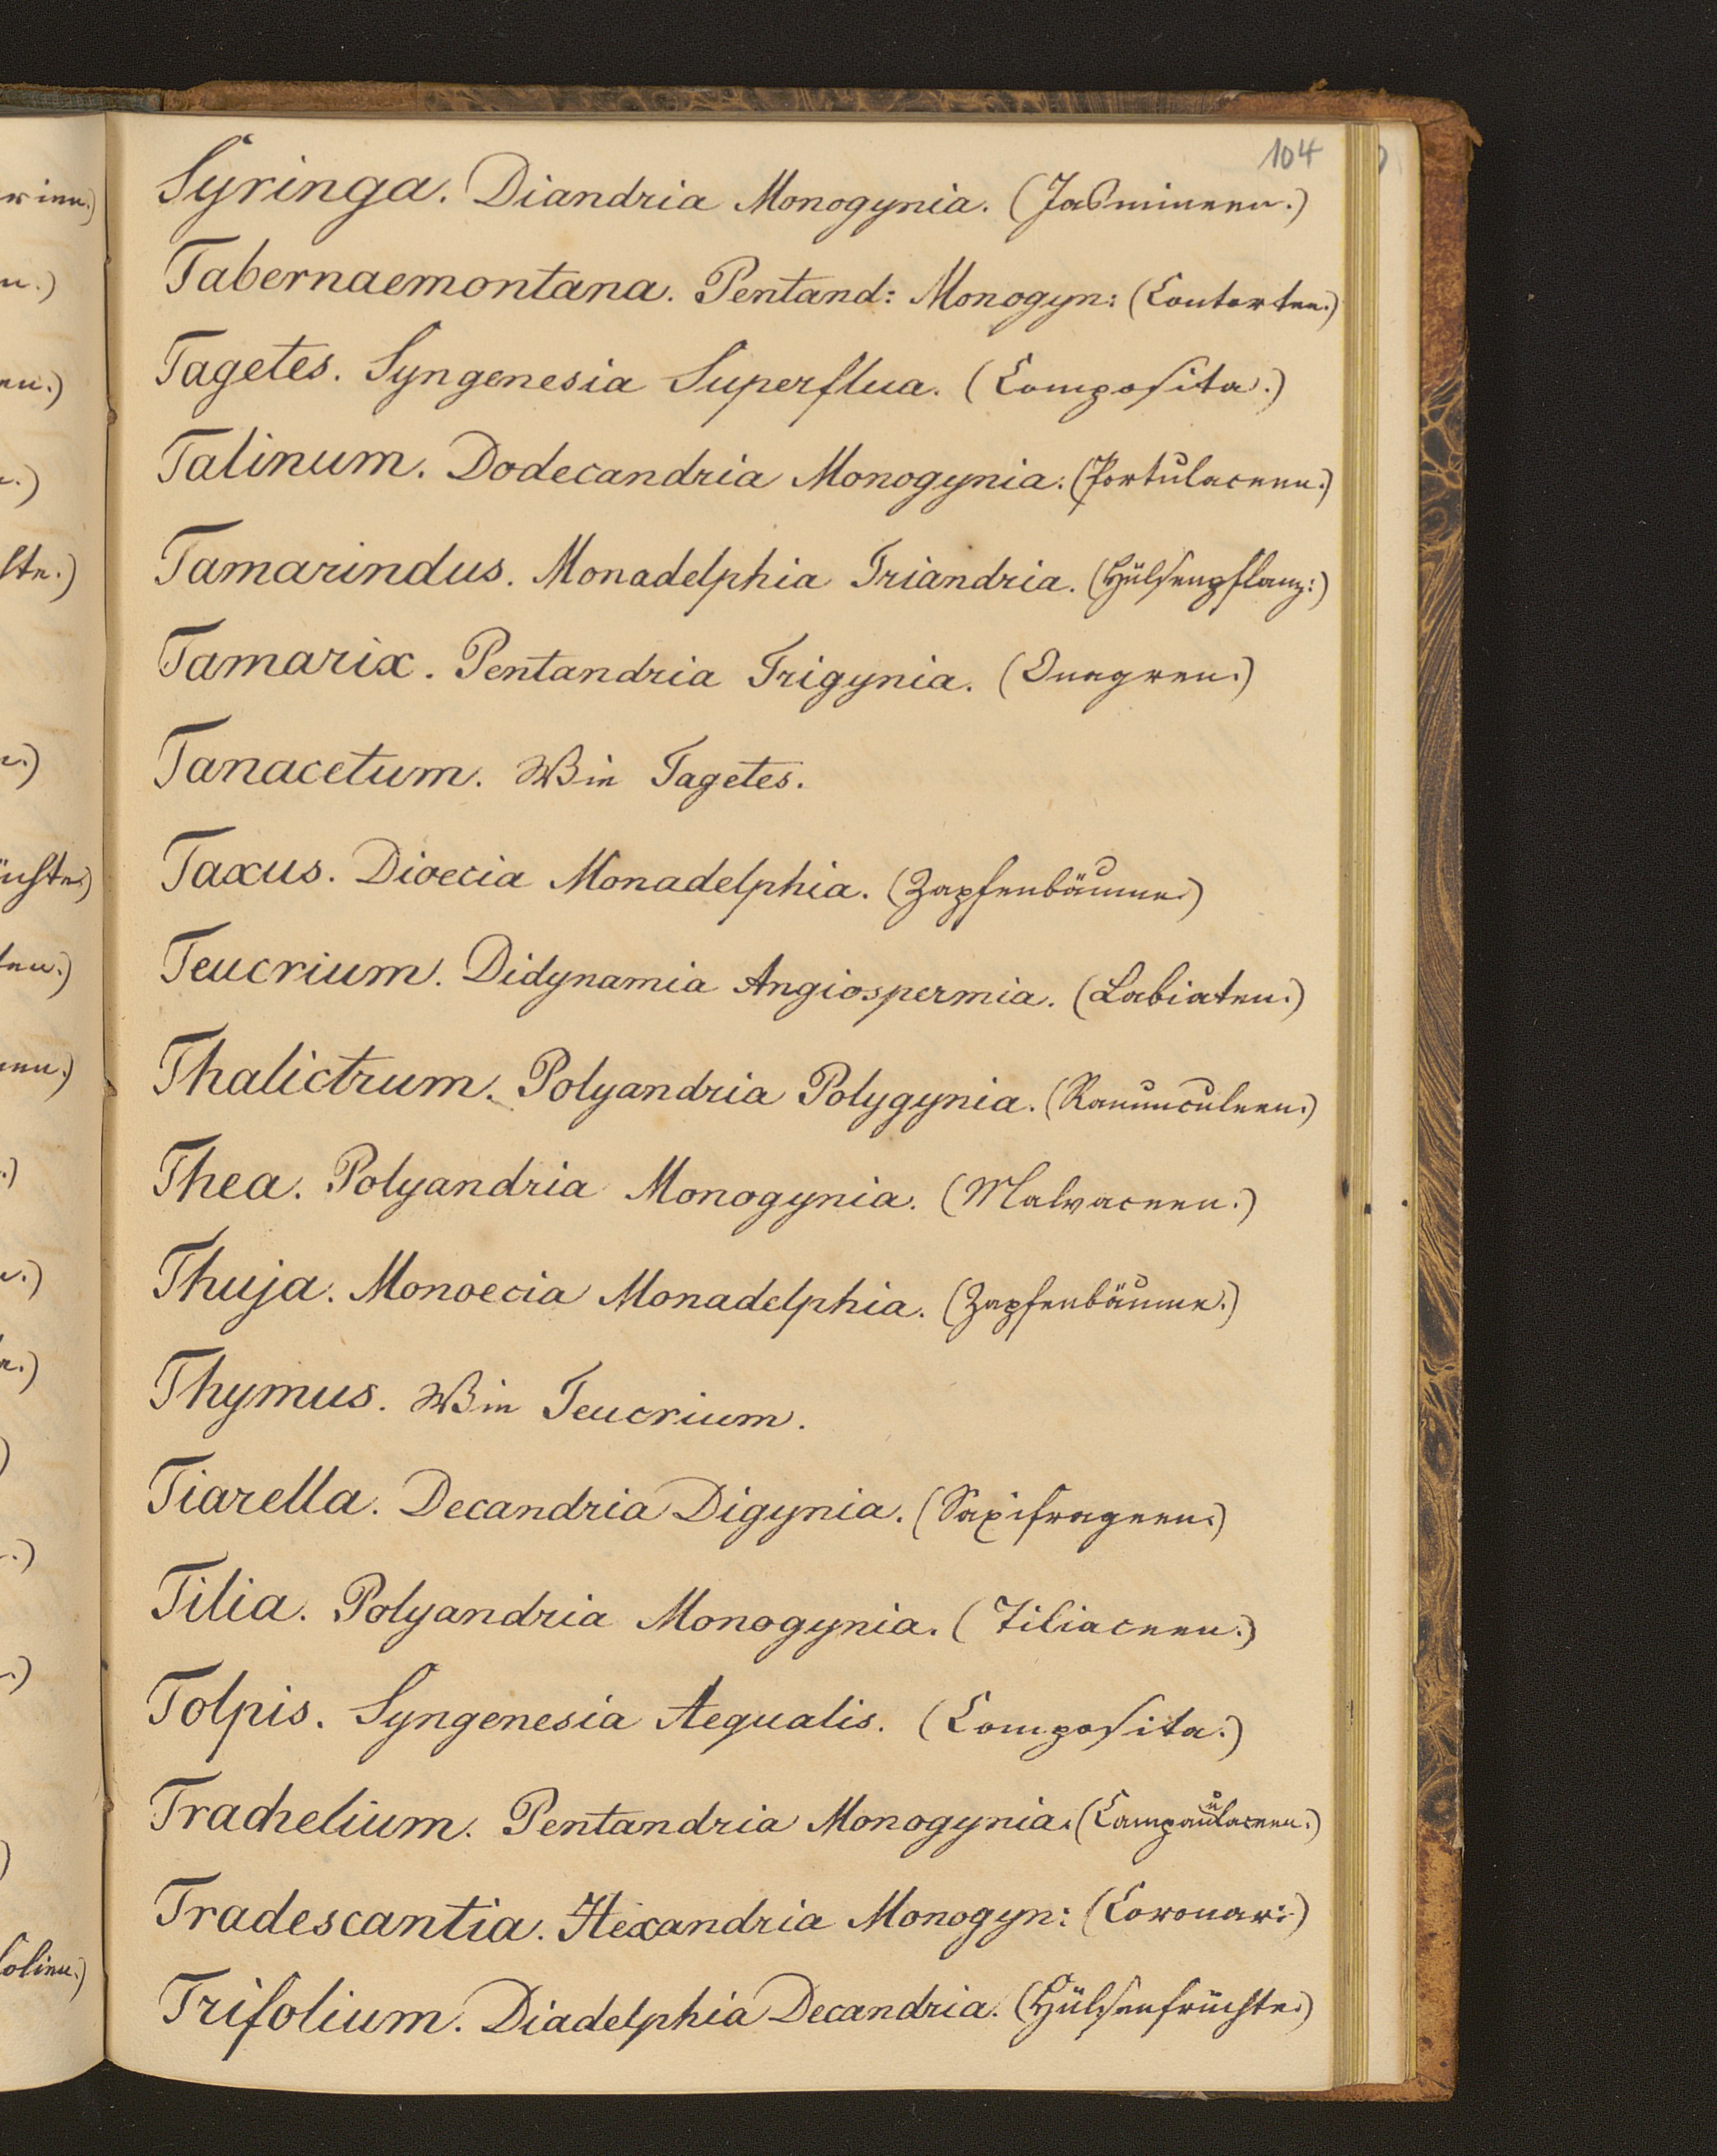 104
Syringa. Diandria Monogynia. (Jasmineen.)
Tabernaemontana. Pentand: Monogyn: (Contorten.)
Tagetes. Syngenesia Superflua. (Composita.)
Talinum. Dodecandria Monogynia. (Portulaceen.)
Tamarindus. Monadelphia Triandria. (Hülsenpflanz:)
Tamarix. Pentandria Trigynia. (Onagren.)
Tanacetum. Wie Tagetes.
Taxus. Dioecia Monadelphia. (Zapfenbäume.)
Teucrium. Didynamia Angiospermia. (Labiaten.)
Thalictrum. Polyandria Polygynia. (Ranunculeen.)
Thea. Polyandria Monogynia. (Malvaceen.)
Thuja. Monoecia Monadelphia. (Zapfenbäume.)
Thymus. Wie Teucrium.
Tiarella. Decandria Digynia. (Saxifrageen.)
Tilia. Polyandria Monogynia. (Tiliaceen.)
Tolpis. Syngenesia Aequalis. (Composita.)
Trachelium. Pentandria Monogynia. (Campanulaceen.)
Tradescantia. Hexandria Monogyn: (Coronar:)
Trifolium. Diadelphia Decandria. (Hülsenfrüchte.)